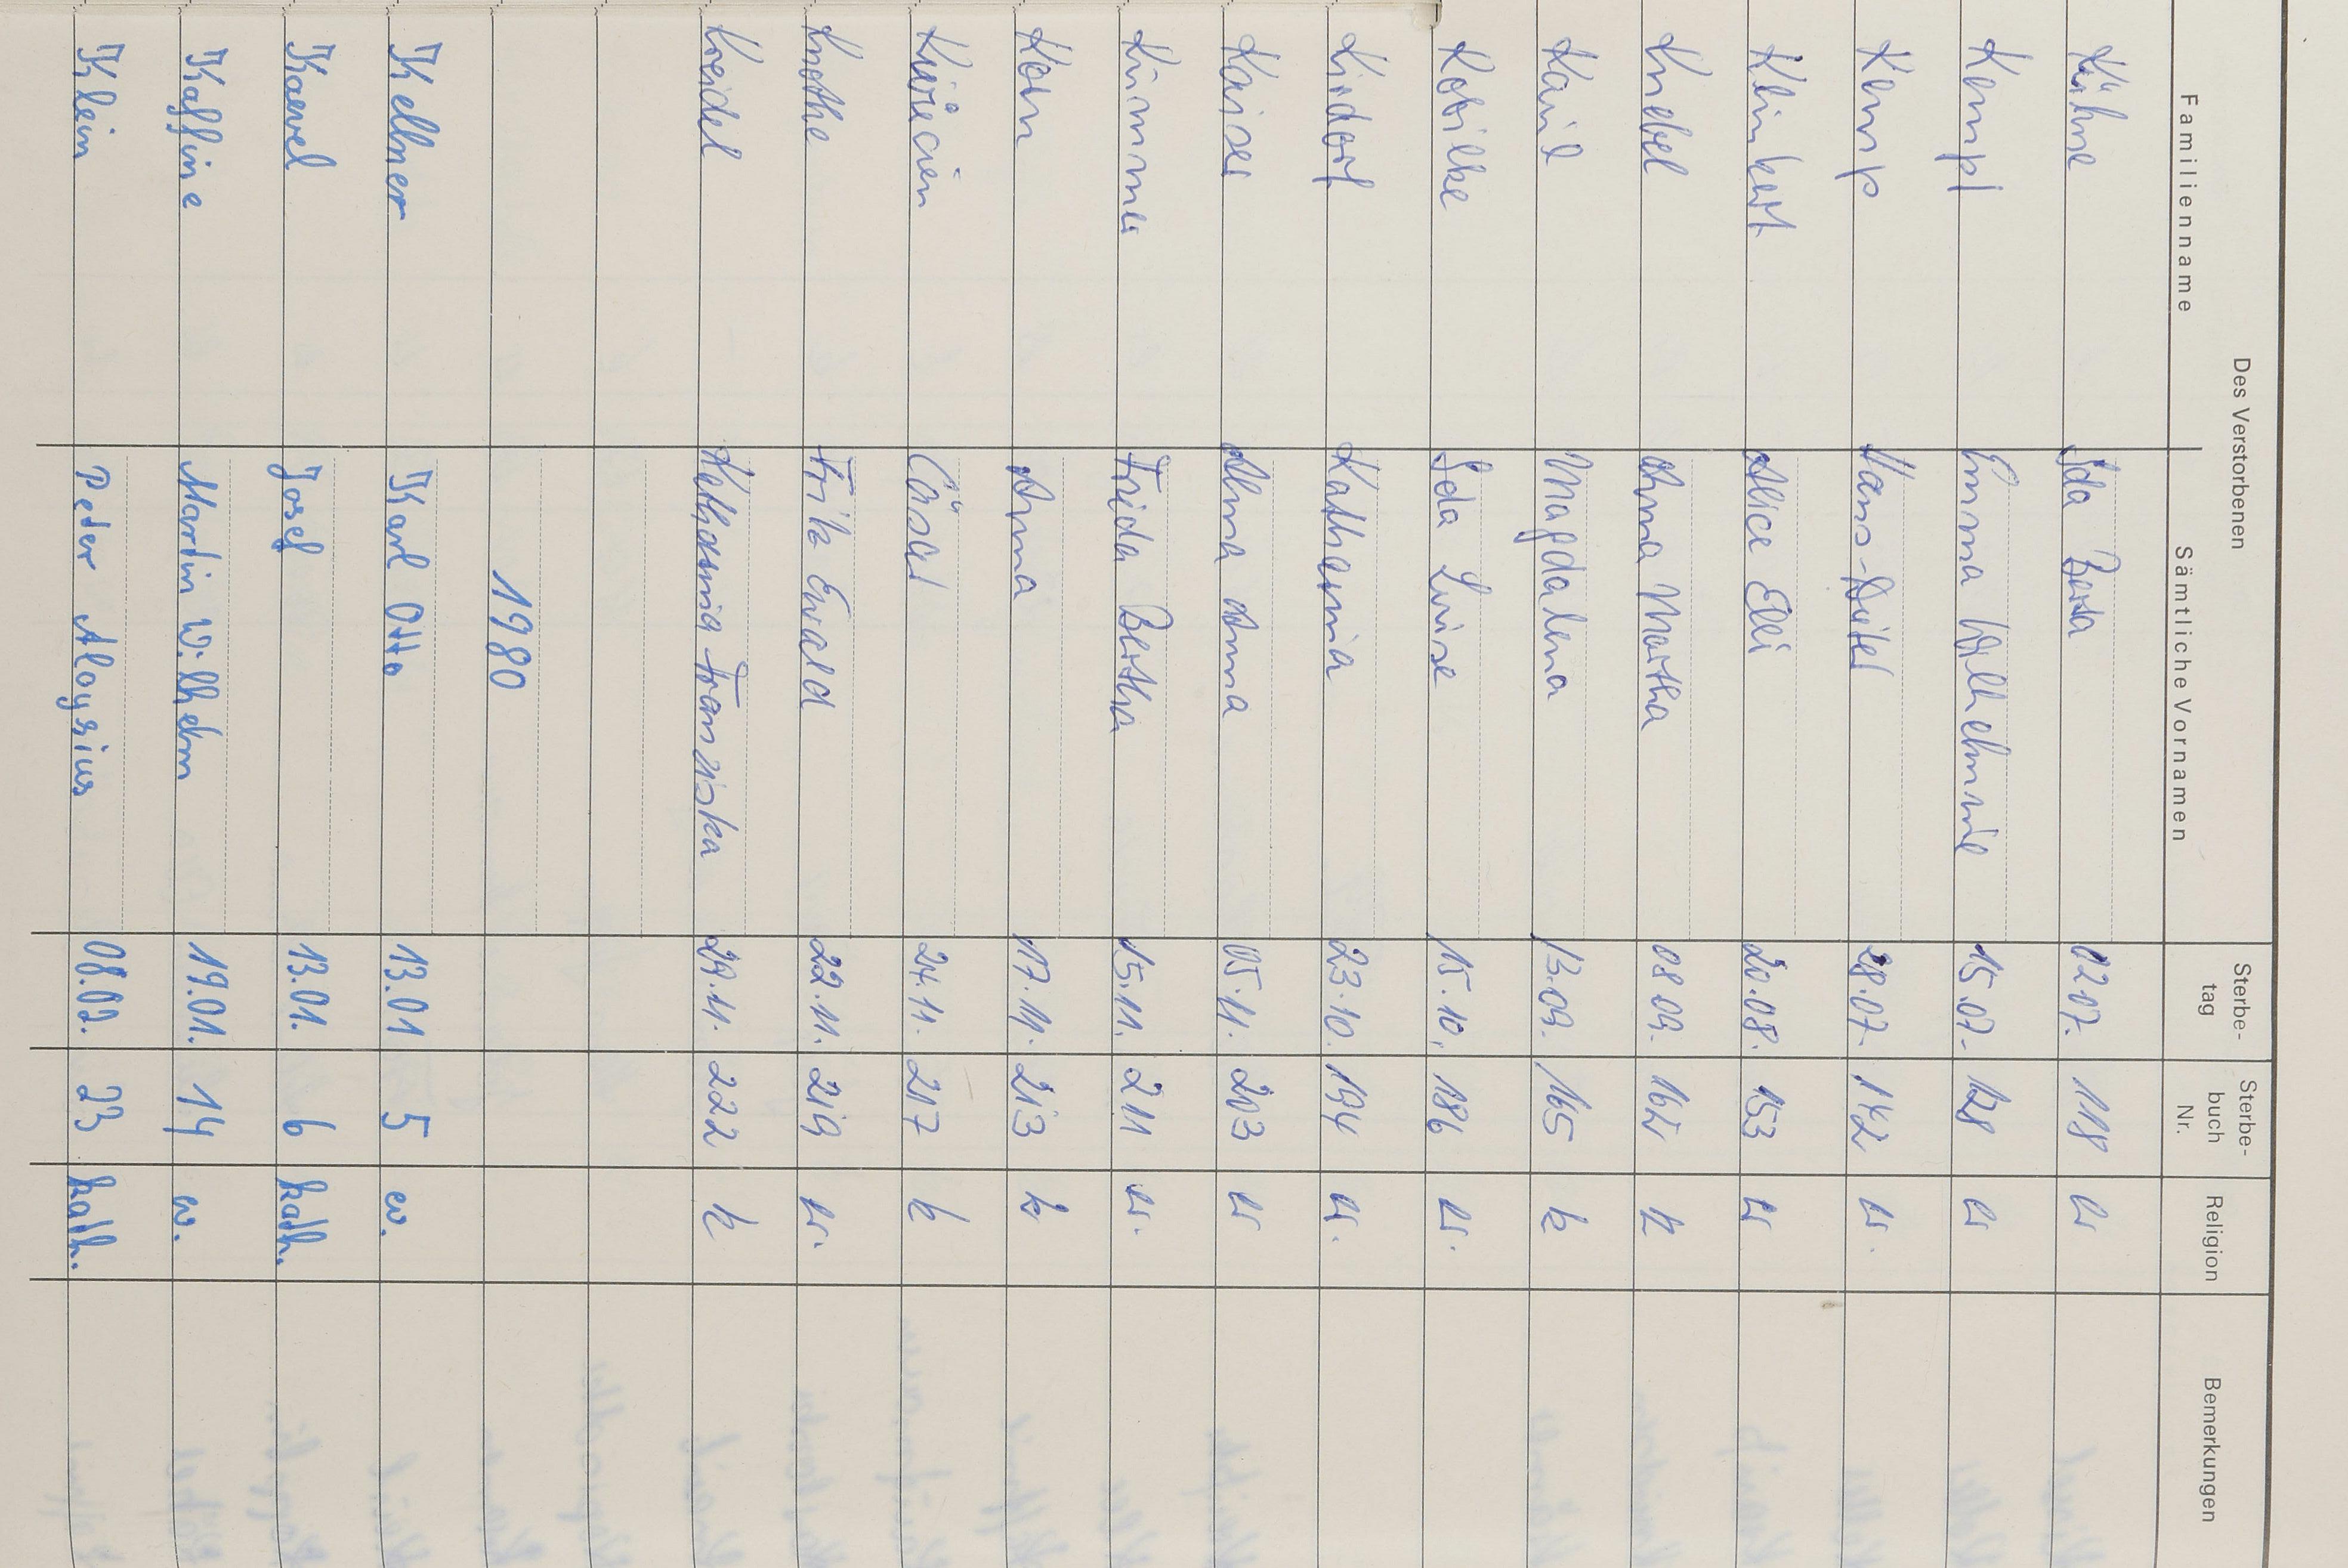 Des Verstorbenen
Familienname Sämtliche Vornamen Sterbe-tag Sterbe-buch Nr. Religion Bemerkungen
Kühne Ida Berta 02.07. 118 ev
Kempf Emma Wilhelmine 15.07. 128 ev
Kemp Hans-Detlef 28.07. 142 ev.
Klinkert Alice Elli 20.08. 153 ev
Knebel Anna Martha 08.09. 162 k
Magdalena 13.09. 165 k
Kobilke Ida Luise 15.10. 186 ev.
Katharina 23.10. 194 ev.
Kaiser Alma Anna 05.11. 203 ev
Kümmer Frieda Bertha 15.11. 211 ev.
Korn Anna 17.11. 213 k
Cäsar 24.11. 217 k
Knothe Fritz Ewald 22.11. 219 ev.
Kreidel Katharina Franziska 29.11. 222 k
1980
Kellner Karl Otto 13.01 5 ev.
Kaevel Josef 13.01. 6 kath.
Kaffine Martin Wilhelm 19.01. 14 ev.
Klein Peter Aloysius 08.02. 23 kath.